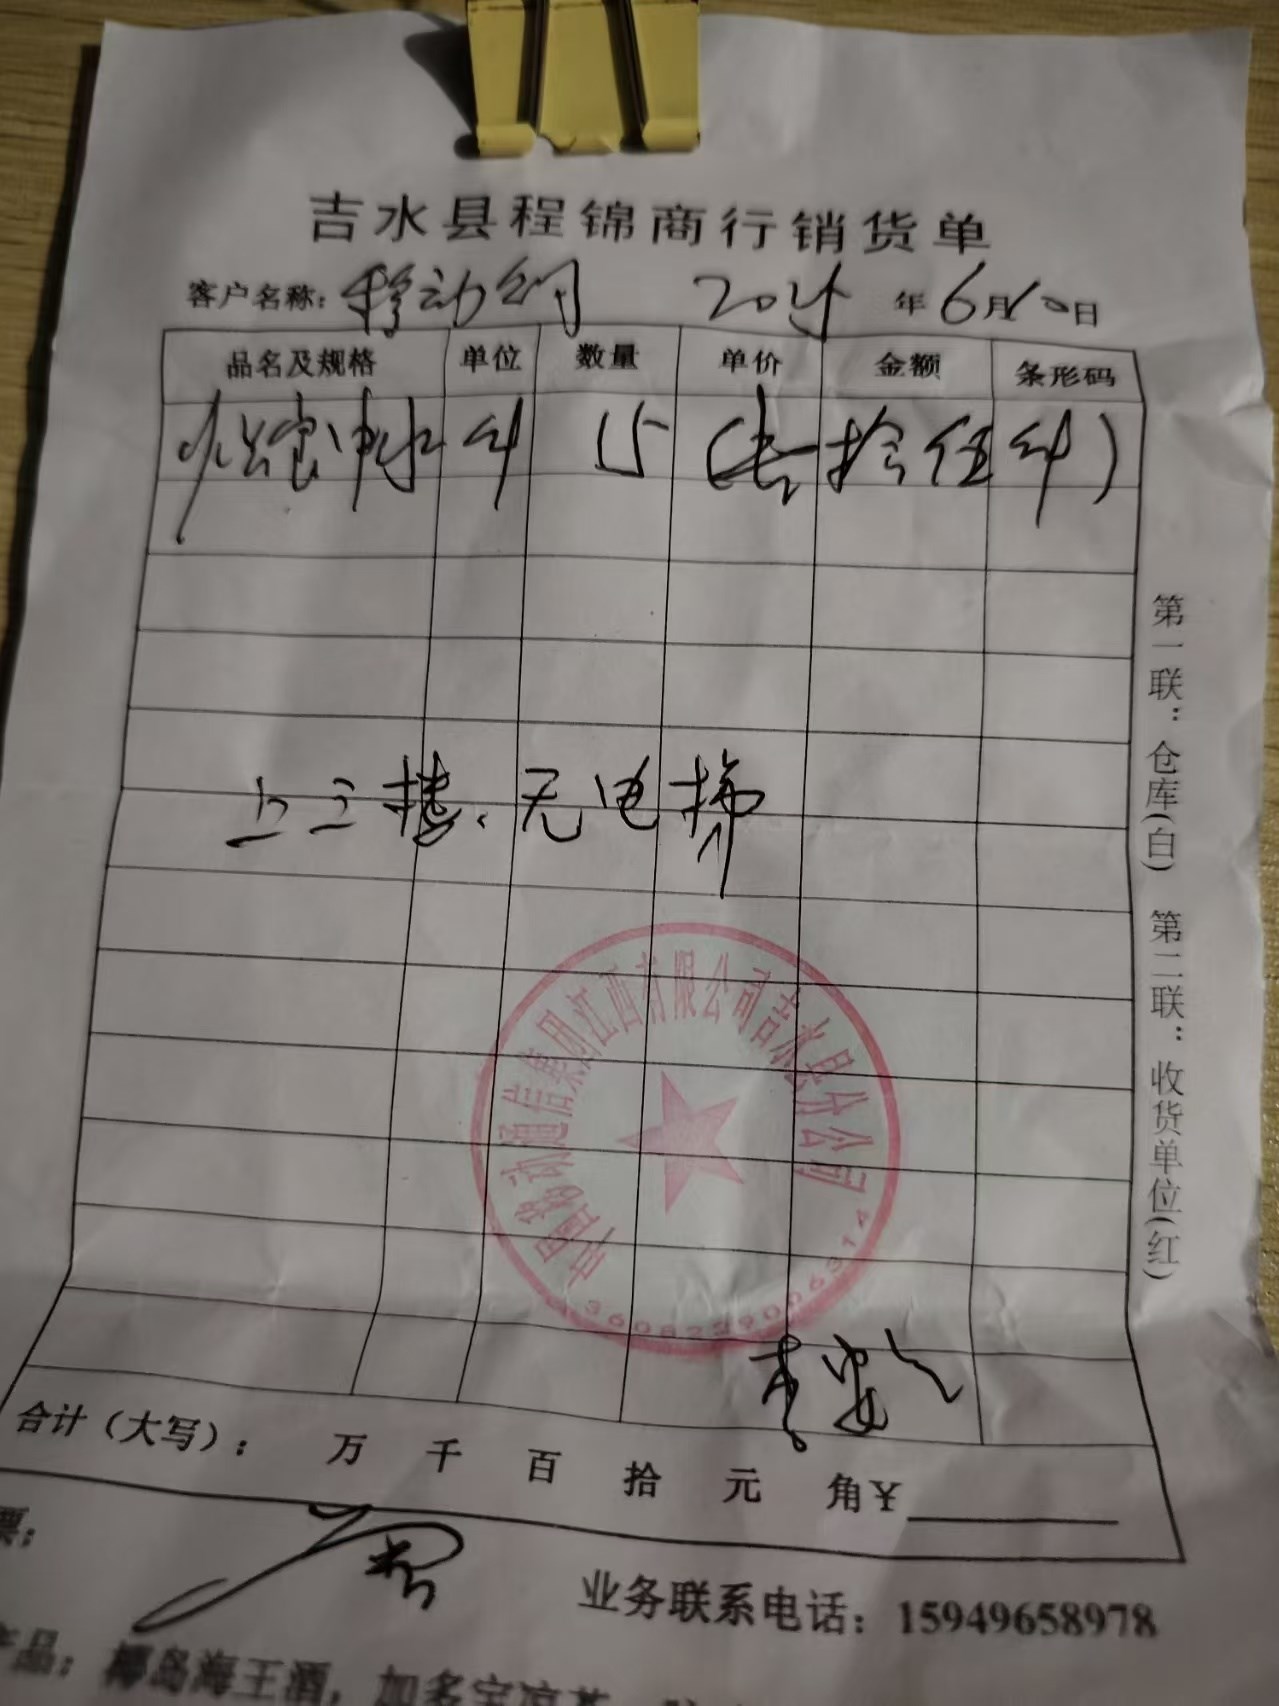 吉水县程锦商行销货单
客户名称: 移动公司 2024 年 6月10日
品名及规格 单位 数量 单价 金额 条形码
件 15 (壹拾伍件)
上三楼、无电梯
中国移动通信集团江西有限公司吉水县分公司
合计(大写): 万 千 百 拾 元 角¥
票:
业务联系电话: 15949658978
产品: 椰岛海王酒, 加多宝凉茶
第一联: 仓库(白) 第二联: 收货单位(红)